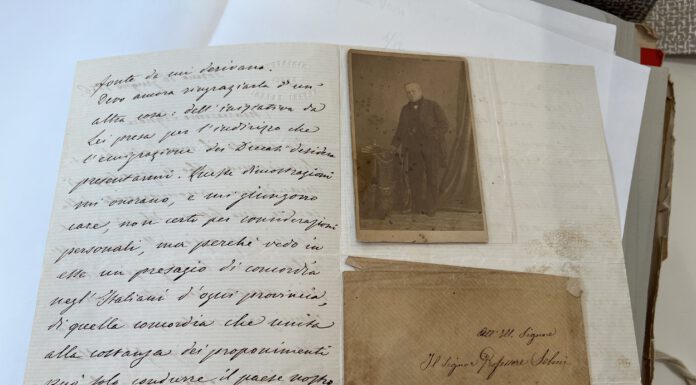 fonte da cui derivano.
Devo ancora ringraziarla d'un'
altra cosa: dell'iniziativa da
Lei presa per l'indirizzo che
l'emigrazione dei Ducati desidera
presentarmi. Queste dimostrazioni
mi onorano, e mi giungono
care, non certo per considerazioni
personali, ma perchè vedo in
esse un presagio di concordia
negl'Italiani d'ogni provincia,
di quella concordia che unita
alla costanza dei proponimenti
può solo condurre il paese nostro
All'Ill. Signore
Il Signor Professore Selmi